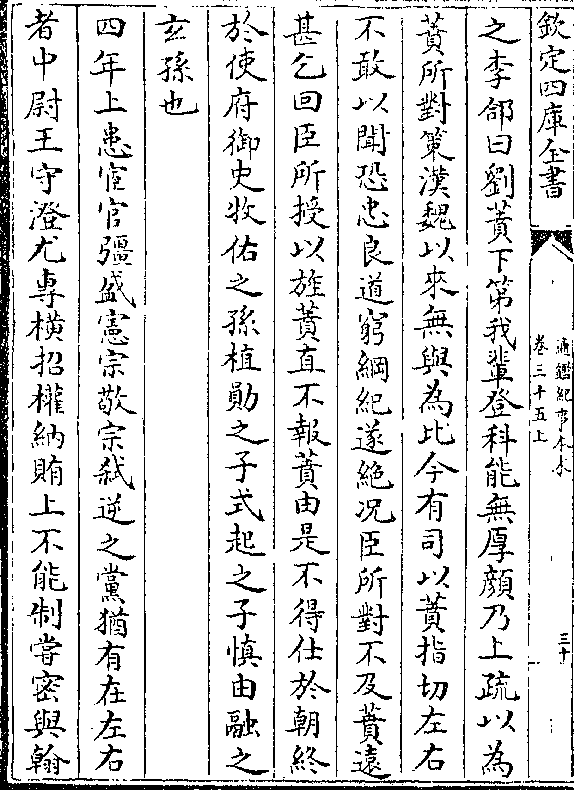 欽定四庫全書
通鑑紀事本末
卷三十五上
三十
之李郃曰劉蕡下第我輩登科能無厚顔乃上疏以為
蕡所對策漢魏以來無與為比今有司以蕡指切左右
不敢以聞恐忠良道窮綱紀遂絶况臣所對不及蕡遠
甚乞回臣所授以旌蕡直不報蕡由是不得仕於朝終
於使府御史牧佑之孫植勛之子式起之子慎由融之
玄孫也
四年上患宦官彊盛憲宗敬宗弑逆之黨猶有在左右
者中尉王守澄尤專横招權納賄上不能制嘗密與翰